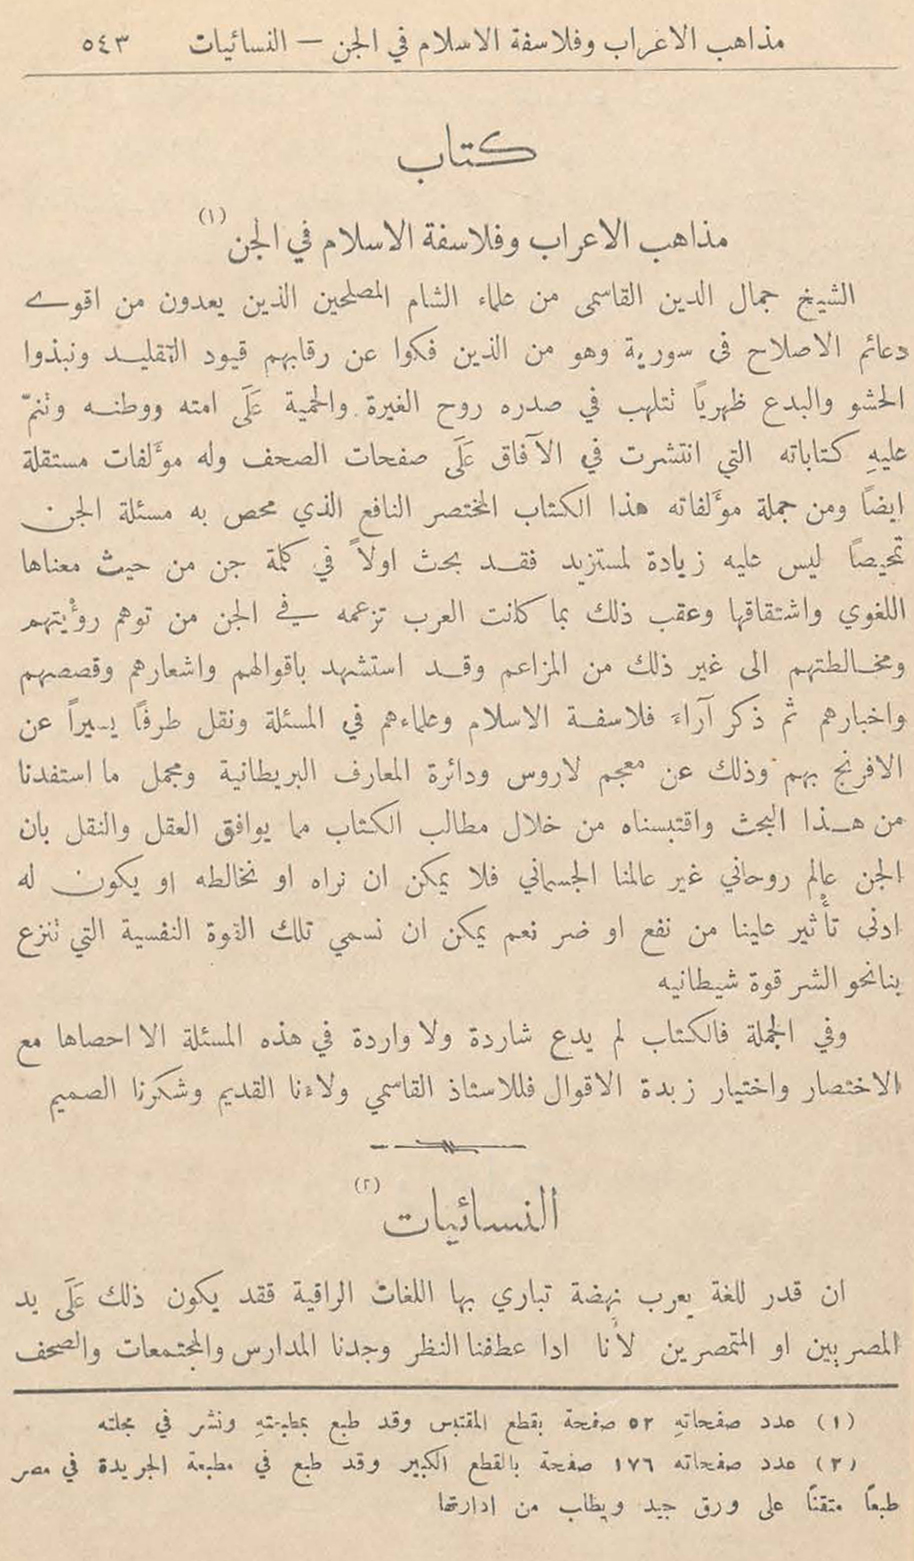 مذاهب الاعراب وفلاسفة الاسلام في الجن – النسائيات ٥٤٣
كتاب
مذاهب الاعراب وفلاسفة الاسلام في الجن (١)
الشيخ جمال الدين القاسمى من علماء الشام المصلحين الذين يعدون من اقوى
دعائم الاصلاح فى سورية وهو من الذين فكوا عن رقابهم قيود التقليد ونبذوا
الحشو والبدع ظهرياً تتلهب في صدره روح الغيرة والحمية عَلَى امته ووطنه وتنمّ
عليهِ كتاباته التي انتشرت في الآفاق عَلَى صفحات الصحف وله مؤلفات مستقلة
ايضاً ومن جملة مؤلفاته هذا الكتاب المختصر النافع الذي محص به مسئلة الجن
تمحيصاً ليس عليه زيادة لمستزيد فقد بحث اولاً في كلمة جن من حيث معناها
اللغوي واشتقاقها وعقب ذلك بما كانت العرب تزعمه في الجن من توهم رؤيتهم
ومخالطتهم الى غير ذلك من المزاعم وقد استشهد باقوالهم واشعارهم وقصصهم
واخبارهم ثم ذكر آراء فلاسفة الاسلام وعلماءهم في المسئلة ونقل طرفاً يسيراً عن
الافرنج بهم وذلك عن معجم لاروس ودائرة المعارف البريطانية ومجمل ما استفدنا
من هذا البحث واقتبسناه من خلال مطالب الكتاب مما يوافق العقل والنقل بان
الجن عالم روحاني غير عالمنا الجسماني فلا يمكن ان نراه او نخالطه او يكون له
ادنى تأثير علينا من نفع او ضر نعم يمكن ان نسمي تلك القوة النفسية التي تنزع
بنانحو الشر قوة شيطانيه
وفي الجملة فالكتاب لم يدع شاردة ولا واردة في هذه المسئلة الا احصاها مع
الاختصار واختيار زبدة الاقوال فللاستاذ القاسمي ولاءنا القديم وشكرنا الصميم
النسائيات (٢)
ان قدر للغة يعرب نهضة تباري بها اللغات الراقية فقد يكون ذلك عَلَى يد
المصريين او المتمصرين لأنا اذا عطفنا النظر وجدنا المدارس والمجتمعات والصحف
(١) عدد صفحاتهِ ٥٢ صفحة بقطع المقتبس وقد طبع بمطبعتهِ ونشر في مجلته
(٢) عدد صفحاته ١٧٦ صفحة بالقطع الكبير وقد طبع في مطبعة الجريدة في مصر
طبعاً متقناً على ورق جيد ويطلب من ادارتها